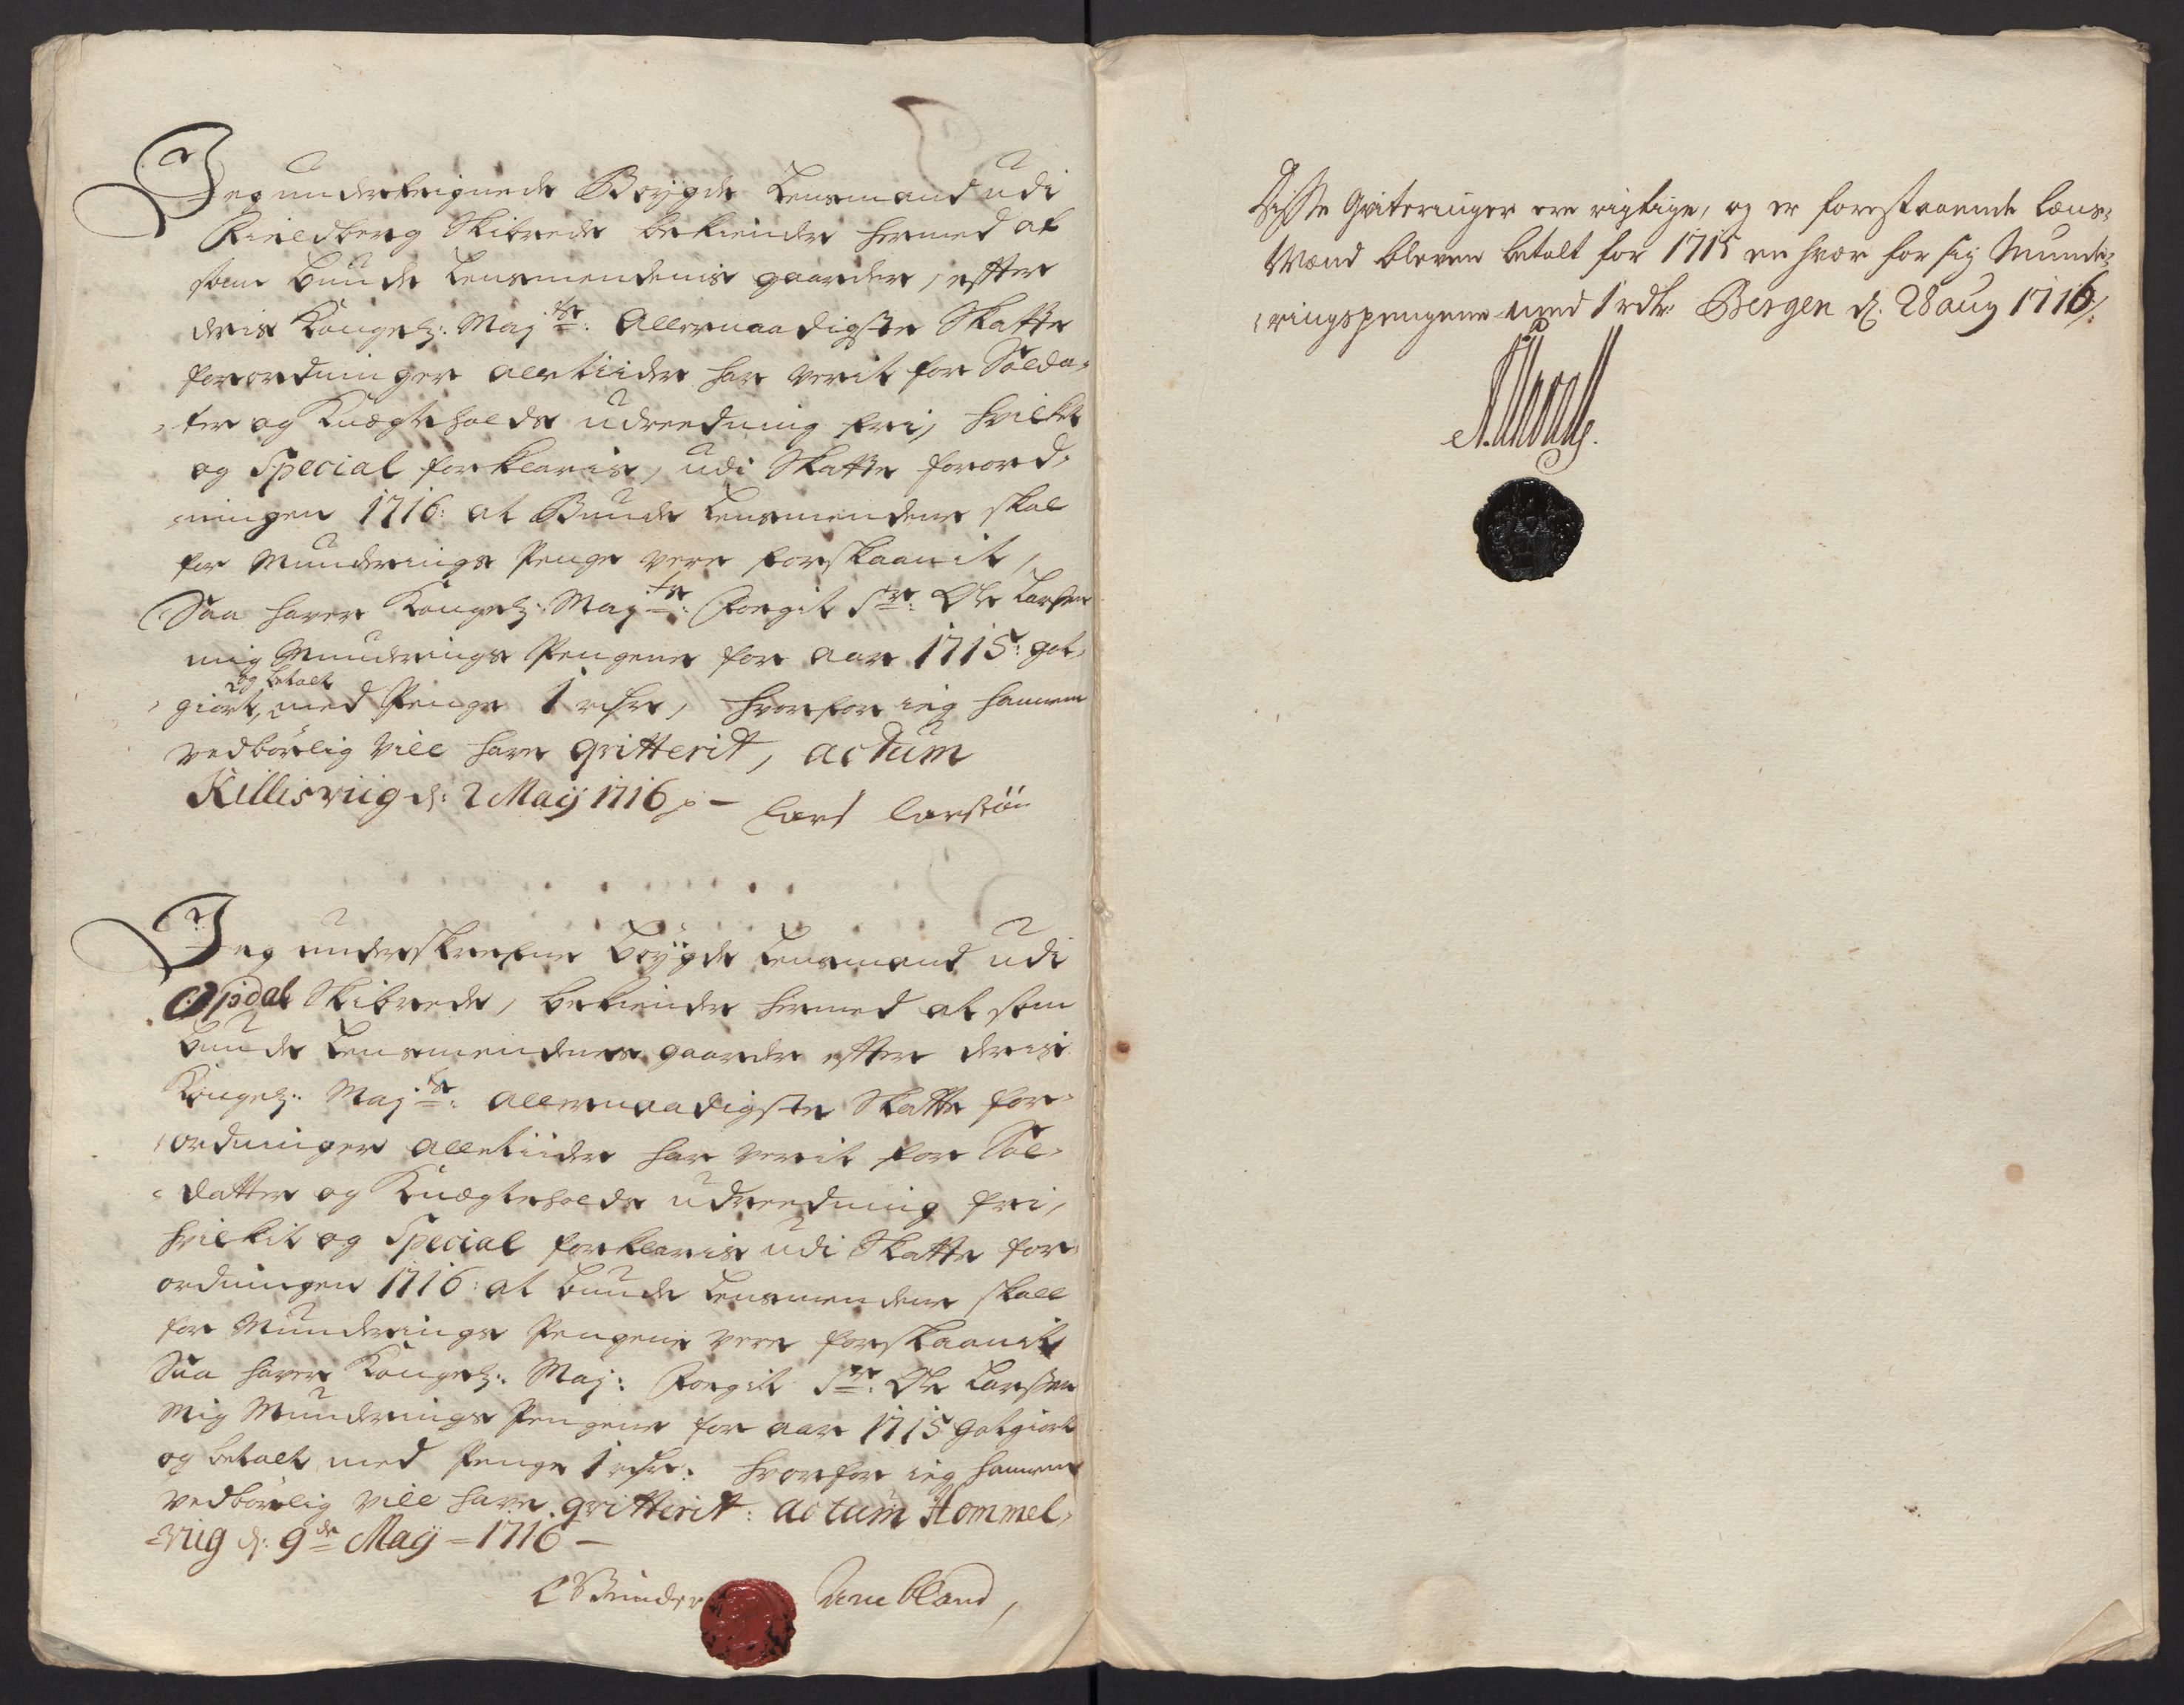 Jeg underteignede Bøygde Lensmand udi
Qvindberg Skibrede bekiender hermed at
som Bunde Lensmendenis gaarder, effter
deris Kongel: May:ts: Allernaadigste Skatte
forordninger alletiider har verit for Solda-
ter og Knægteholds udreedning fri, hvilket
og Special forklaris, udi Skatte forord-
ningen 1716: at Bunde Lensmendene skal
for Munderings Penge vere forskaanit,
Saa haver Kongel: May:ts: Foogit Sr: Ole Larsen
mig Munderings Pengene for aar 1715: got-
giort, og betalt med Penge 1 rdr, hvorfor ieg hannem
vedbørlig vill have qvitterit, actum
Killisviig d: 2 Maij 1716 –
Lars Larsøn
Jeg underskrefne Bøygde Lensmand udi
Opdal Skibrede, bekiender hermed at som
Bunde Lensmendenes gaarder effter deris
Kongel: May:ts: allernaadigste Skatte for-
ordninger alletiider har verit for Sol-
datter og Knægteholds udreedning fri,
hvilkit og Special forklaris udi Skatte for-
ordningen 1716: at Bunde Lensmendene skall
for Munderings Pengene vere forskaanit
Saa haver Kongel: May: Foogit Sr: Ole Larsen
mig Munderings Pengene for aar 1715 gotgiort
og betalt med Penge 1 rdr: hvorfor ieg hannem
vedbørlig vill have qvitterit: actum Hommel-
viig d: 9de Maij 1716 –
Disse Qviteringer ere rigtige, og er forestaaende Læns-
Mænd bleven betalt for 1715 en hver for sig Munde-
ringspengene med 1 rdr Bergen d. 28 aug 1716